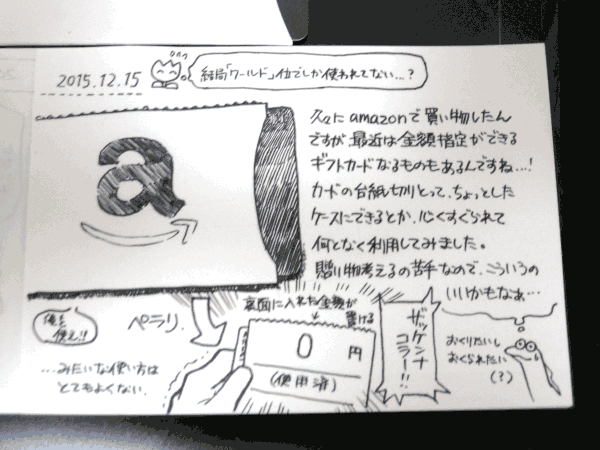 2015.12.15
結局「ワールド」位でしか使われてない…?
久々にamazonで買い物したん
ですが最近は金額指定ができる
ギフトカードなるものもあるんですね…!
カードの台紙切りとって、ちょっとした
ケースにできるとか、心くすぐられて
何となく利用してみました。
贈り物考えるの苦手なので、こういうの
いいかもなぁ…
a
俺を
使え!!
ペラリ。
裏面に入れた金額が
書ける
0円
(使用済)
ザッケンナ
コラー!!
おくりたいし
おくられたい
(?)
…みたいな使い方は
とてもよくない。